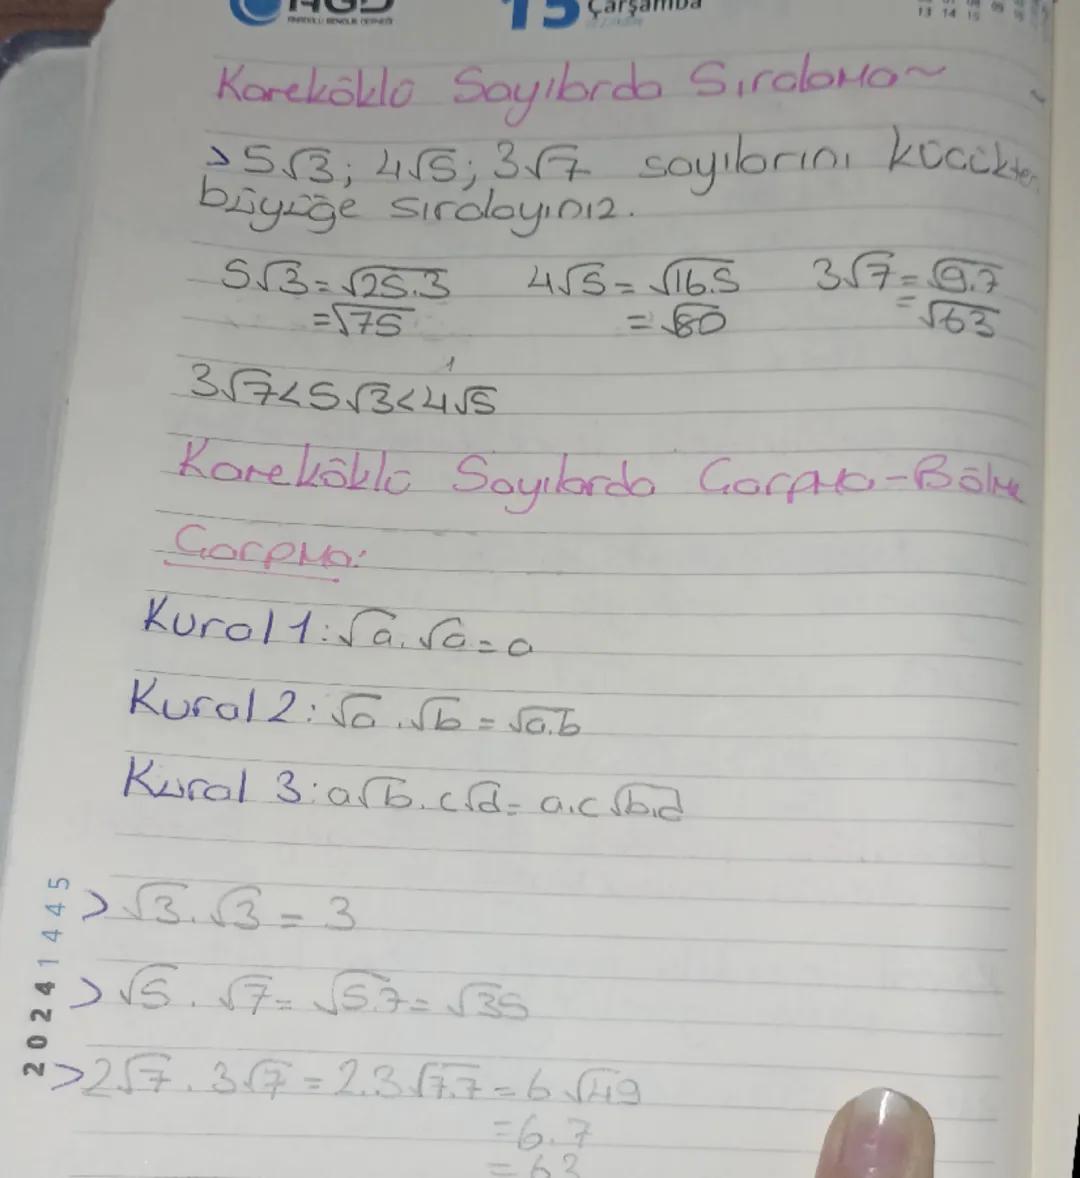 AGD
ANADOLU GENÇLİK DERNEĞİ
15 Çarşamba
13 14 15
Kareköklü Sayılarda Sıralama~
>5√3; 4√5; 3√7 sayılarını küçükten
büyüğe sıralayınız.
5√3=√25.3 4√5=√16.5 3√7=√9.7
=√75 =√80 =√63
3√7<5√3<4√5
Kareköklü Sayılarda Çarpma-Bölme
Çarpma:
Kural 1:√a.√a=a
Kural 2:√a.√b=√a.b
Kural 3:a√b.c√d=a.c√b.d
>√3.√3=3
>√5.√7=√5.7=√35
>2√7.3√7=2.3√7.7=6√49
=6.7
=63
2024 1445